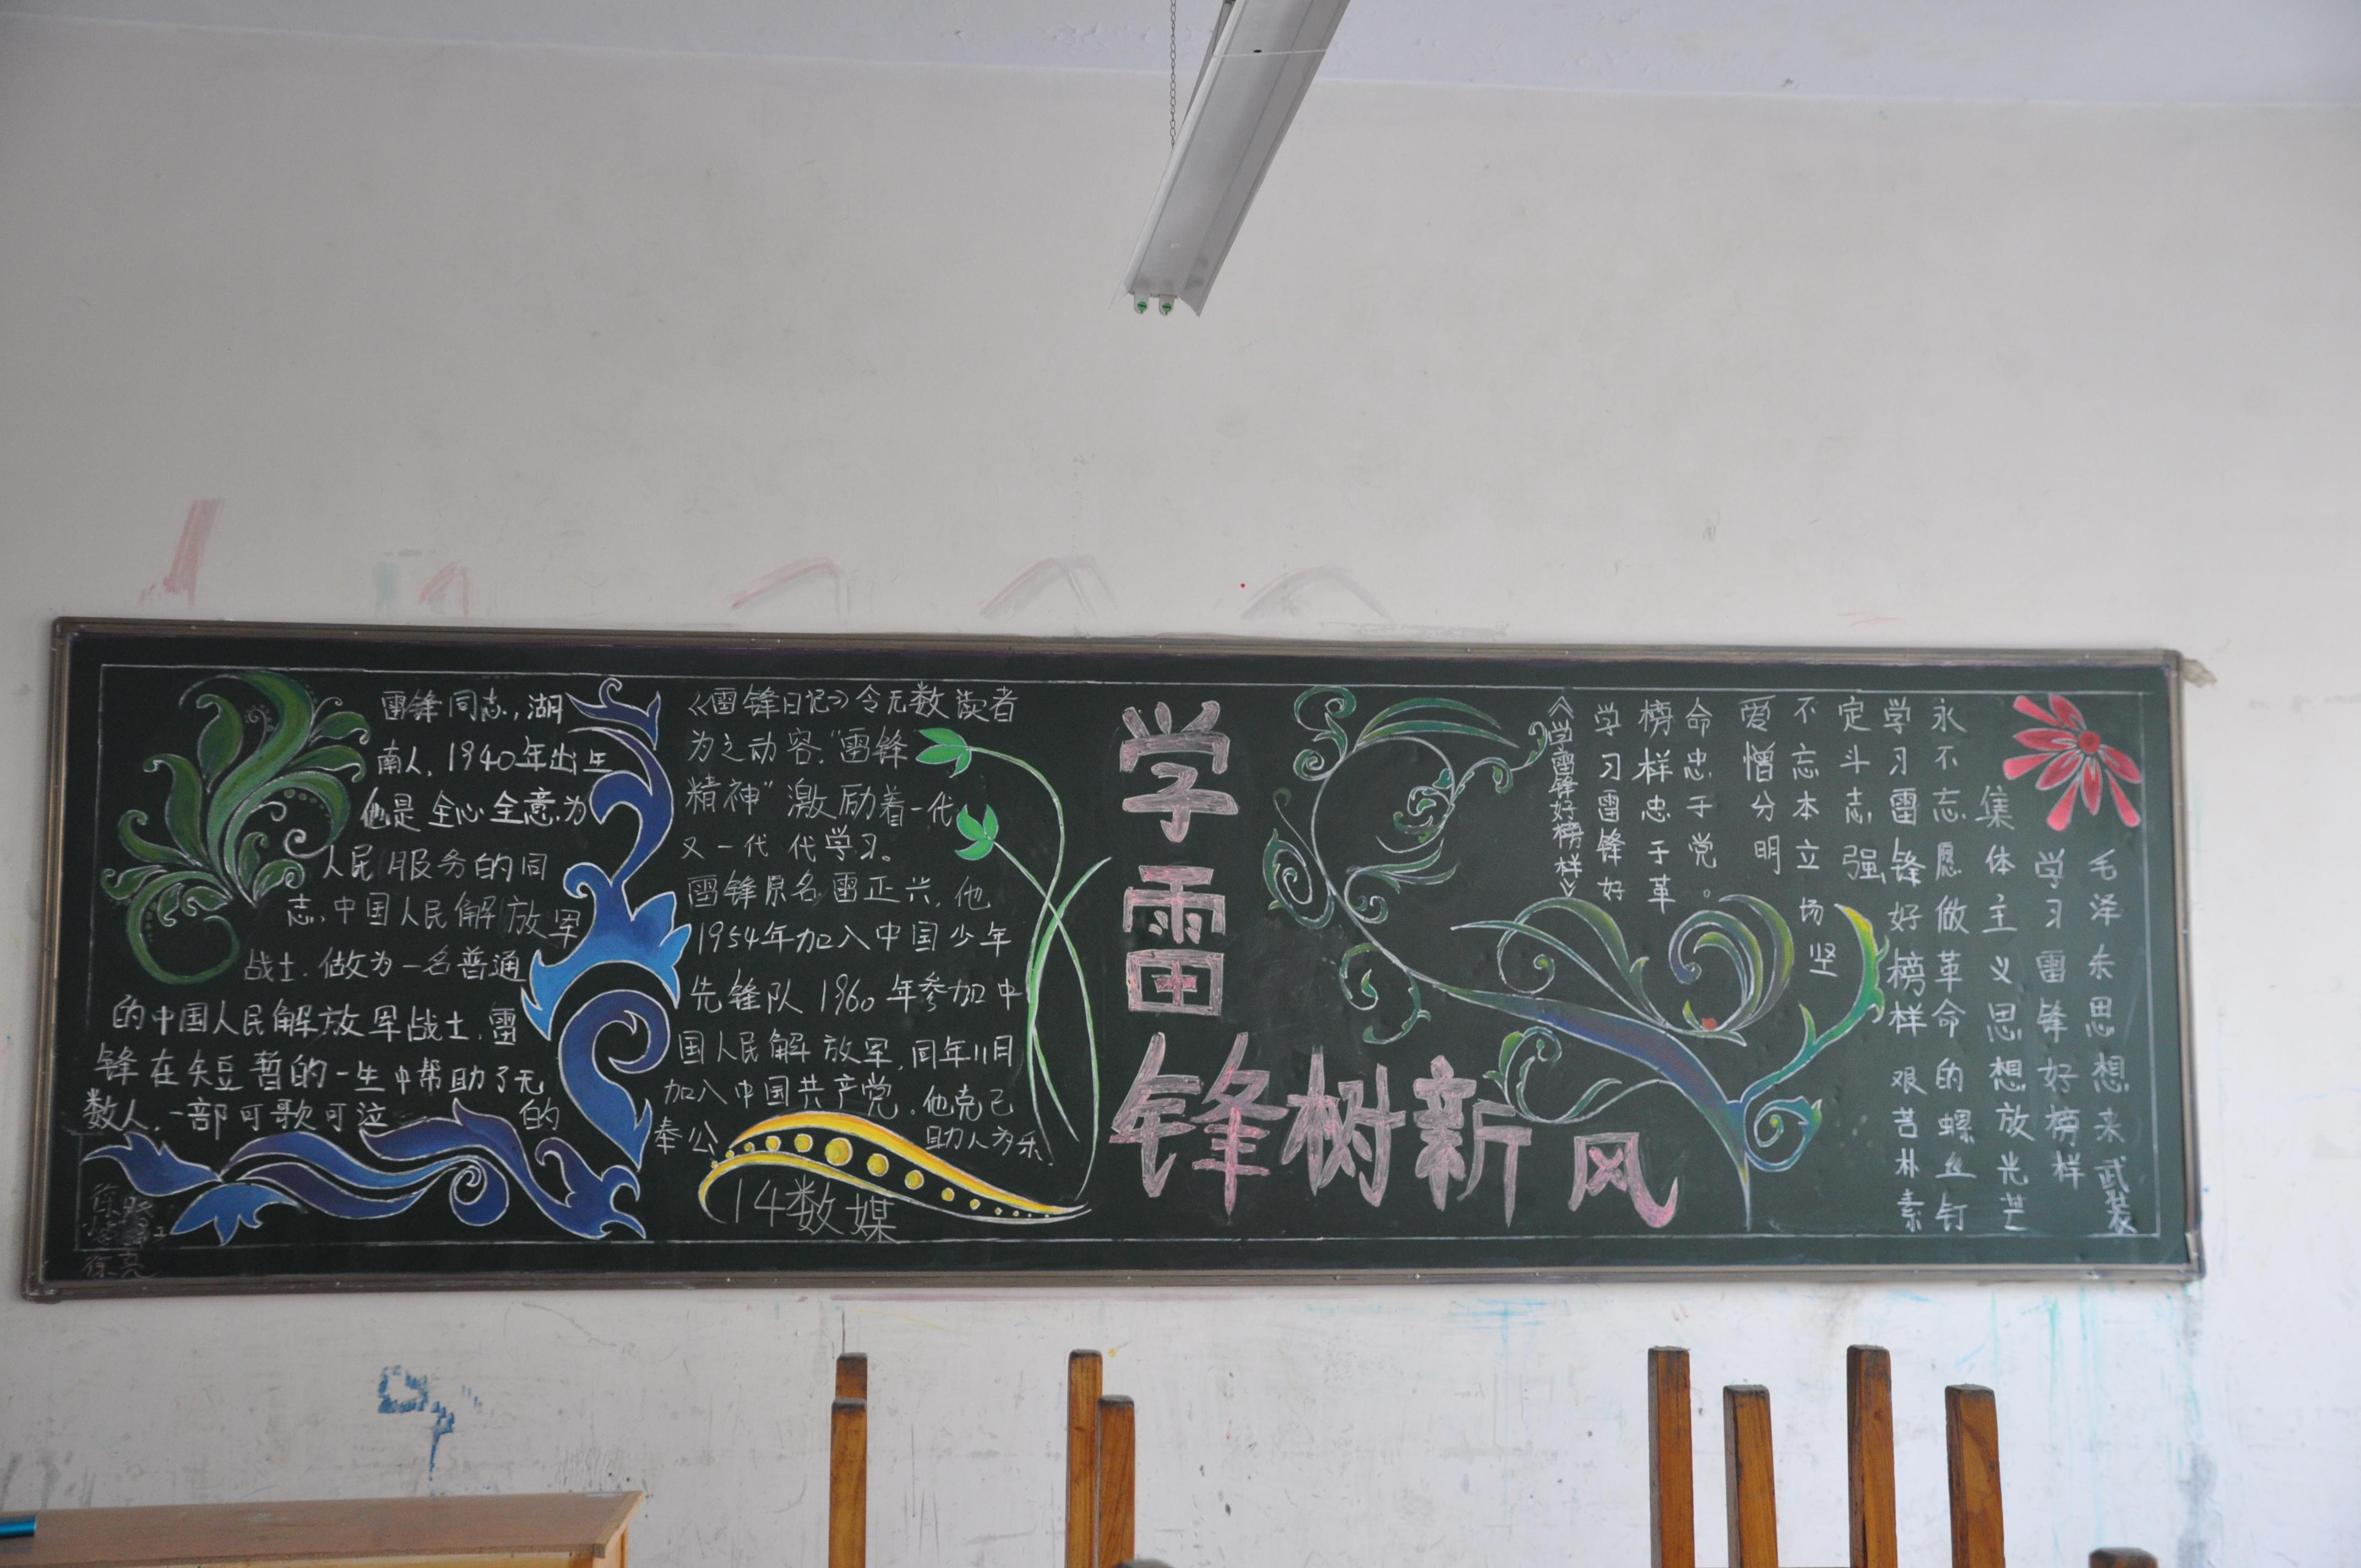 雷锋同志，湖
南人，1940年出生
他是全心全意为
人民服务的同
志，中国人民解放军
战士，做为一名普通
的中国人民解放军战士，雷
锋在短暂的一生中帮助了无
数人，一部可歌可泣的
《雷锋日记》令无数读者
为之动容，"雷锋
精神"激励着一代
又一代代学习。
雷锋原名雷正兴，他
1954年加入中国少年
先锋队1960年参加中
国人民解放军，同年11月
加入中国共产党，他克己
奉公 助人为乐.
14数媒
学
雷
锋树新风
《学雷锋好榜样》
学习雷锋好
榜样忠于革
命忠于党。
爱憎分明
不忘本立场坚
定斗志强
学习雷锋好榜样艰苦朴素
永不忘愿做革命的螺丝钉
集体主义思想放光芒
学习雷锋好榜样
毛泽东思想来武装